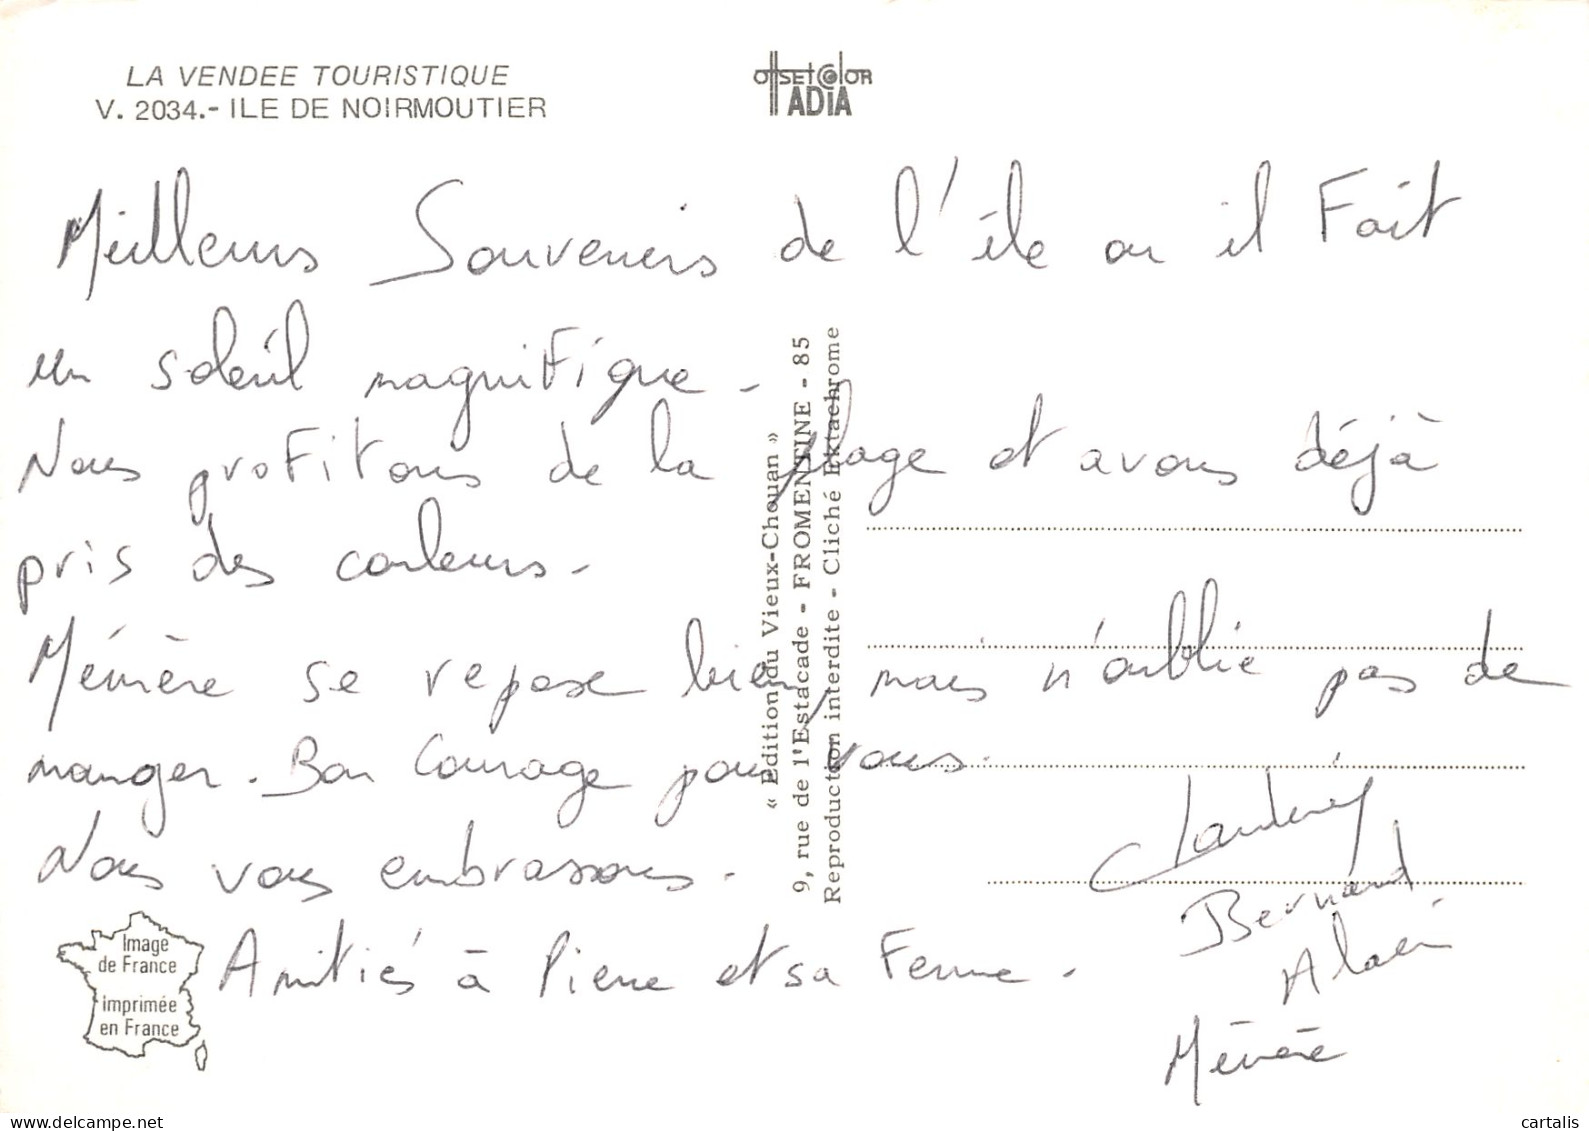 LA VENDEE TOURISTIQUE
V. 2034.- ILE DE NOIRMOUTIER
OffSEt COlOR
ADIA
Meilleurs Souvenirs de l'île ou il Fait
un soleil magnifique -
Nous profitons de la plage et avons déjà
pris des couleurs -
Mémère se repose bien, mais n'oublie pas de
manger. Bon Courage pour vous.
Nous vous embrassons -
Amitiés à Pierre et sa Femme -
Bernard
Alain
Mémère
« Edition du Vieux-Chouan »
9, rue de l'Estacade - FROMENTINE - 85
Reproduction interdite - Cliché Ektachrome
Image
de France
imprimée
en France
delcampe.net
cartalis